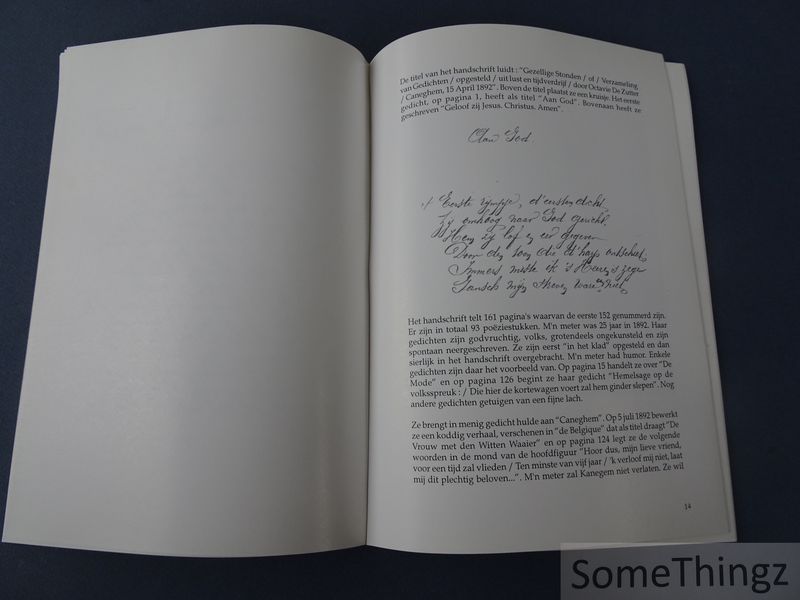 De titel van het handschrift luidt : "Gezellige Stonden / of / Verzameling
van Gedichten / opgesteld / uit lust en tijdverdrijf / door Octavie De Zutter
/ Caneghem, 15 April 1892". Boven de titel plaatst ze een kruisje. Het eerste
gedicht, op pagina 1, heeft als titel "Aan God". Bovenaan heeft ze
geschreven "Geloof zij Jesus. Christus. Amen".
Aan God.
Eerste rympje, d'eerste dicht
Zij omhoog naar God gericht.
Hem zij lof en eer gegeven
Door den toon die
Immers miste ik 's Heeren zege
Gansch mijn streven ware niet
Het handschrift telt 161 pagina's waarvan de eerste 152 genummerd zijn.
Er zijn in totaal 93 poëziestukken. M'n meter was 25 jaar in 1892. Haar
gedichten zijn godvruchtig, volks, grotendeels ongekunsteld en zijn
spontaan neergeschreven. Ze zijn eerst "in het klad" opgesteld en dan
sierlijk in het handschrift overgebracht. M'n meter had humor. Enkele
gedichten zijn daar het voorbeeld van. Op pagina 15 handelt ze over "De
Mode" en op pagina 126 begint ze haar gedicht "Hemelsage op de
volksspreuk : / Die hier de kortewagen voert zal hem ginder slepen". Nog
andere gedichten getuigen van een fijne lach.
Ze brengt in menig gedicht hulde aan "Caneghem". Op 5 juli 1892 bewerkt
ze een koddig verhaal, verschenen in "de Belgique" dat als titel draagt "De
Vrouw met den Witten Waaier" en op pagina 124 legt ze de volgende
woorden in de mond van de hoofdfiguur "Hoor dus, mijn lieve vriend,
voor een tijd zal vlieden / Ten minste van vijf jaar / 'k verloof mij niet, laat
mij dit plechtig beloven...". M'n meter zal Kanegem niet verlaten. Ze wil
14
SomeThingz